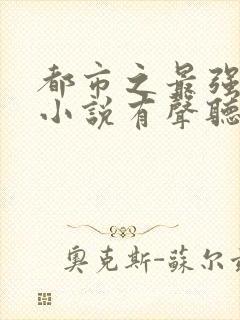 都市之最强
小說有聲聽
奧克斯-蘇尔